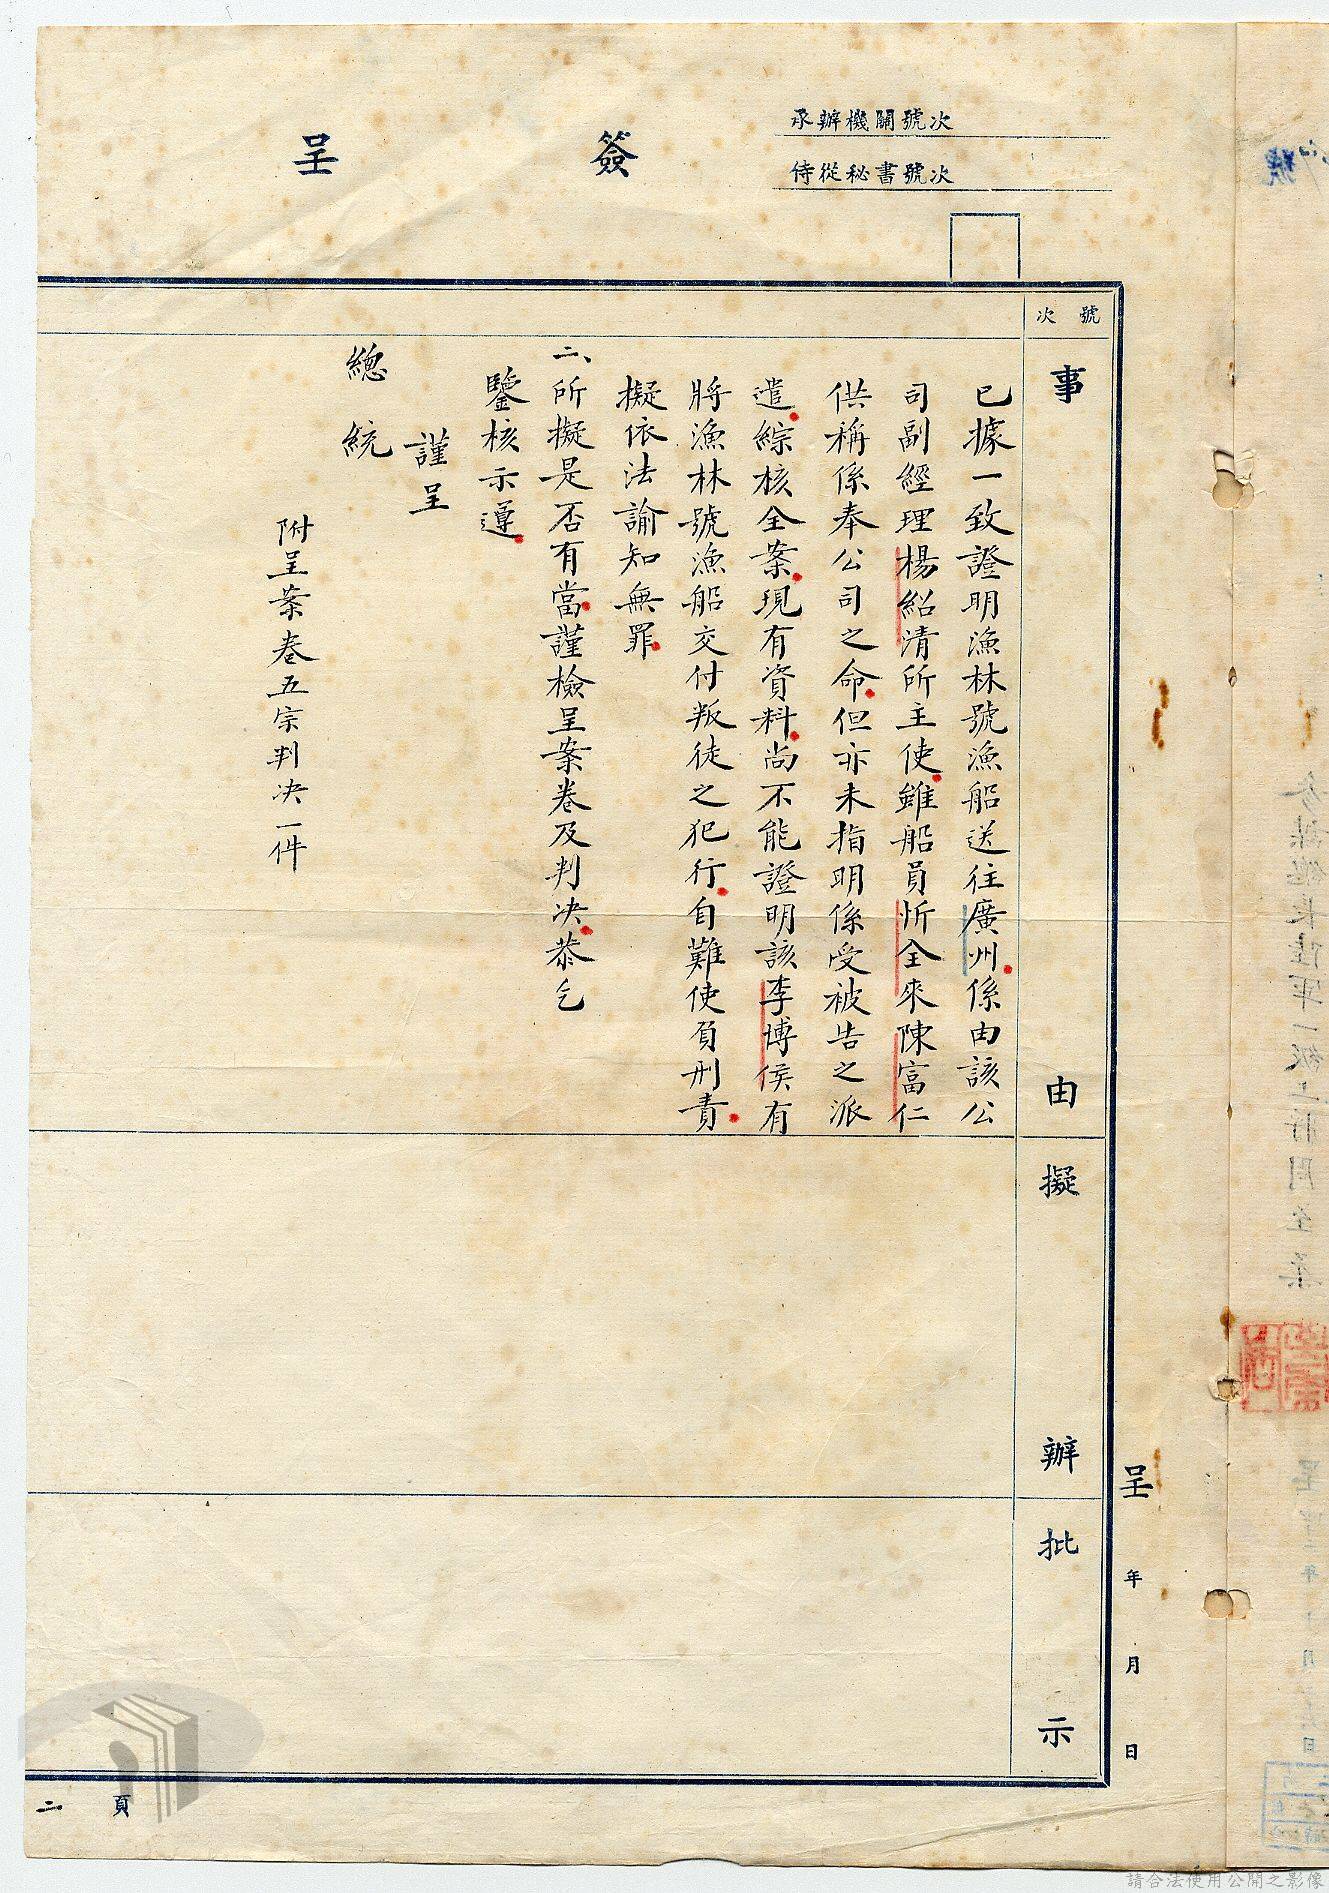 簽呈
承辦機關號次
侍從秘書號次
號次
事由
擬辦
批示
已據一致證明漁林號漁船送往廣州係由該公
司副經理楊紹清所主使雖船員忻全來陳富仁
供稱係奉公司之命但亦未指明係受被告之派
遣綜核全案現有資料尚不能證明該李博侯有
將漁林號漁船交付叛徒之犯行自難使負刑責
擬依法諭知無罪
二、所擬是否有當謹檢呈案卷及判決恭乞
鑒核示遵
謹呈
總統
附呈案卷五宗判決一件
呈 年 月 日
頁二
請合法使用公開之影像